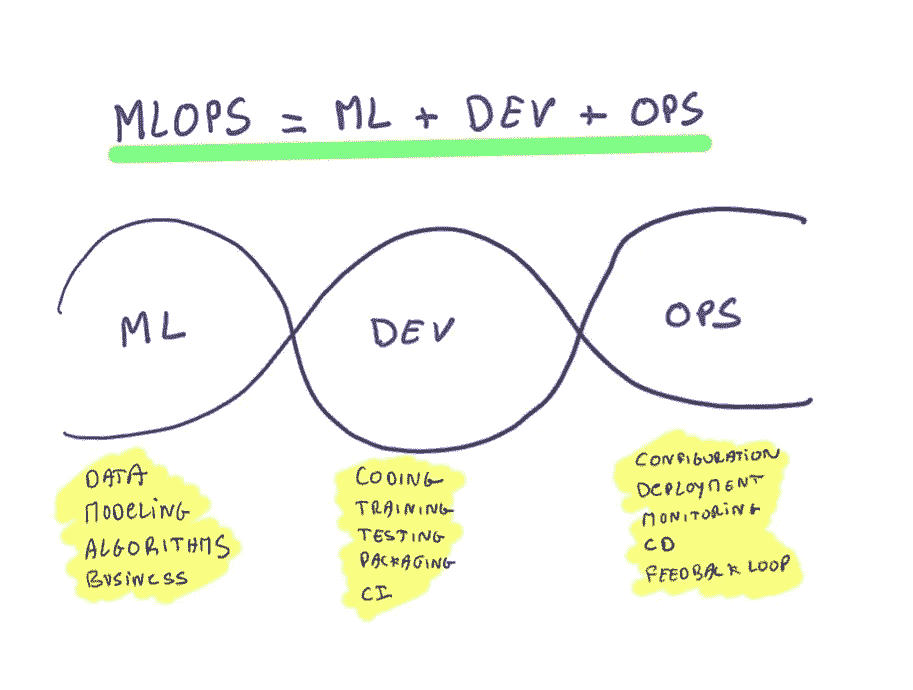 MLOPS = ML + DEV + OPS
ML
DEV
OPS
DATA
MODELING
ALGORITHMS
BUSINESS
CODING
TRAINING
TESTING
PACKAGING
CI
CONFIGURATION
DEPLOYMENT
MONITORING
CD
FEEDBACK LOOP